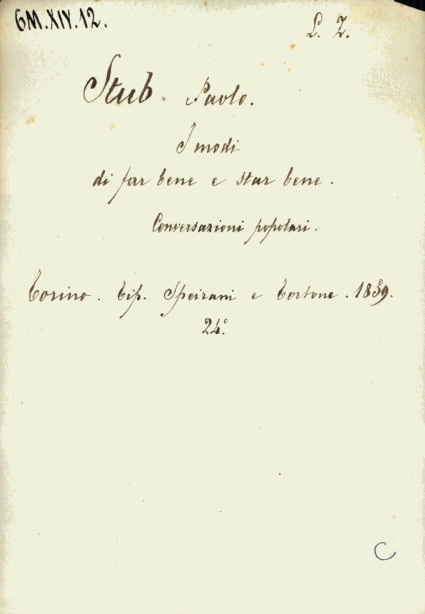 6M.XIV.12. L. Z.
Stub Paolo.
I modi
di far bene e star bene.
Conversazioni popolari.
Torino. Tip. Speirani e Tortone. 1859.
24°
C